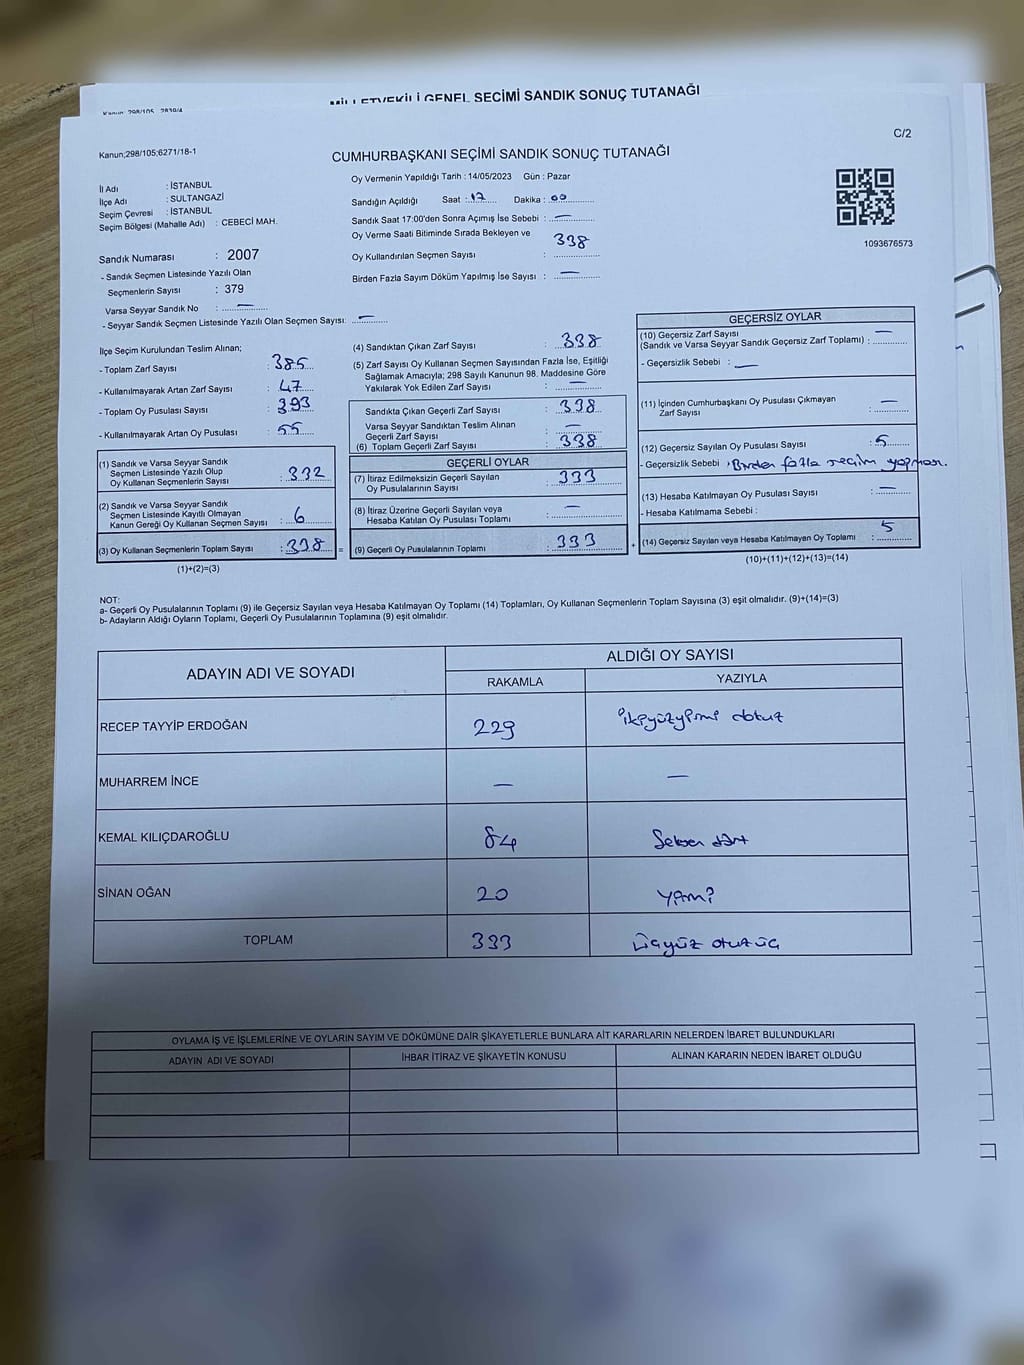 MİLLETVEKİLİ GENEL SEÇİMİ SANDIK SONUÇ TUTANAĞI
C/2
Kanun;298/105;6271/18-1
CUMHURBAŞKANI SEÇİMİ SANDIK SONUÇ TUTANAĞI
İl Adı : İSTANBUL
İlçe Adı : SULTANGAZİ
Seçim Çevresi : İSTANBUL
Seçim Bölgesi (Mahalle Adı) : CEBECİ MAH.
Sandık Numarası : 2007
- Sandık Seçmen Listesinde Yazılı Olan
Seçmenlerin Sayısı : 379
Varsa Seyyar Sandık No : —
- Seyyar Sandık Seçmen Listesinde Yazılı Olan Seçmen Sayısı: —
Oy Vermenin Yapıldığı Tarih : 14/05/2023 Gün : Pazar
Sandığın Açıldığı Saat : 17 Dakika : 00
Sandık Saat 17:00'den Sonra Açımış İse Sebebi : —
Oy Verme Saati Bitiminde Sırada Bekleyen ve
Oy Kullandırılan Seçmen Sayısı : 338
Birden Fazla Sayım Döküm Yapılmış İse Sayısı : —
1093676573
İlçe Seçim Kurulundan Teslim Alınan;
- Toplam Zarf Sayısı : 385
- Kullanılmayarak Artan Zarf Sayısı : 47
- Toplam Oy Pusulası Sayısı : 393
- Kullanılmayarak Artan Oy Pusulası : 55
(1) Sandık ve Varsa Seyyar Sandık
Seçmen Listesinde Yazılı Olup
Oy Kullanan Seçmenlerin Sayısı : 332
(2) Sandık ve Varsa Seyyar Sandık
Seçmen Listesinde Kayıtlı Olmayan
Kanun Gereği Oy Kullanan Seçmen Sayısı : 6
(3) Oy Kullanan Seçmenlerin Toplam Sayısı : 338 =
(1)+(2)=(3)
(4) Sandıktan Çıkan Zarf Sayısı : 338
(5) Zarf Sayısı Oy Kullanan Seçmen Sayısından Fazla İse, Eşitliği
Sağlamak Amacıyla; 298 Sayılı Kanunun 98. Maddesine Göre
Yakılarak Yok Edilen Zarf Sayısı : —
Sandıkta Çıkan Geçerli Zarf Sayısı : 338
Varsa Seyyar Sandıktan Teslim Alınan
Geçerli Zarf Sayısı : —
(6) Toplam Geçerli Zarf Sayısı : 338
GEÇERLİ OYLAR
(7) İtiraz Edilmeksizin Geçerli Sayılan
Oy Pusulalarının Sayısı : 333
(8) İtiraz Üzerine Geçerli Sayılan veya
Hesaba Katılan Oy Pusulası Toplamı : —
(9) Geçerli Oy Pusulalarının Toplamı : 333 +
GEÇERSİZ OYLAR
(10) Geçersiz Zarf Sayısı
(Sandık ve Varsa Seyyar Sandık Geçersiz Zarf Toplamı) : —
- Geçersizlik Sebebi : —
(11) İçinden Cumhurbaşkanı Oy Pusulası Çıkmayan
Zarf Sayısı : —
(12) Geçersiz Sayılan Oy Pusulası Sayısı : 5
- Geçersizlik Sebebi : Birden fazla seçim yapması.
(13) Hesaba Katılmayan Oy Pusulası Sayısı : —
- Hesaba Katılmama Sebebi :
(14) Geçersiz Sayılan veya Hesaba Katılmayan Oy Toplamı : 5
(10)+(11)+(12)+(13)=(14)
NOT:
a- Geçerli Oy Pusulalarının Toplamı (9) ile Geçersiz Sayılan veya Hesaba Katılmayan Oy Toplamı (14) Toplamları, Oy Kullanan Seçmenlerin Toplam Sayısına (3) eşit olmalıdır. (9)+(14)=(3)
b- Adayların Aldığı Oyların Toplamı, Geçerli Oy Pusulalarının Toplamına (9) eşit olmalıdır.
ADAYIN ADI VE SOYADI
ALDIĞI OY SAYISI
RAKAMLA YAZIYLA
RECEP TAYYİP ERDOĞAN 229 ikiyüzyirmi dokuz
MUHARREM İNCE — —
KEMAL KILIÇDAROĞLU 84 Seksen dört
SİNAN OĞAN 20 yirmi
TOPLAM 333 üçyüz otuz üç
OYLAMA İŞ VE İŞLEMLERİNE VE OYLARIN SAYIM VE DÖKÜMÜNE DAİR ŞİKAYETLERLE BUNLARA AİT KARARLARIN NELERDEN İBARET BULUNDUKLARI
ADAYIN ADI VE SOYADI İHBAR İTİRAZ VE ŞİKAYETİN KONUSU ALINAN KARARIN NEDEN İBARET OLDUĞU